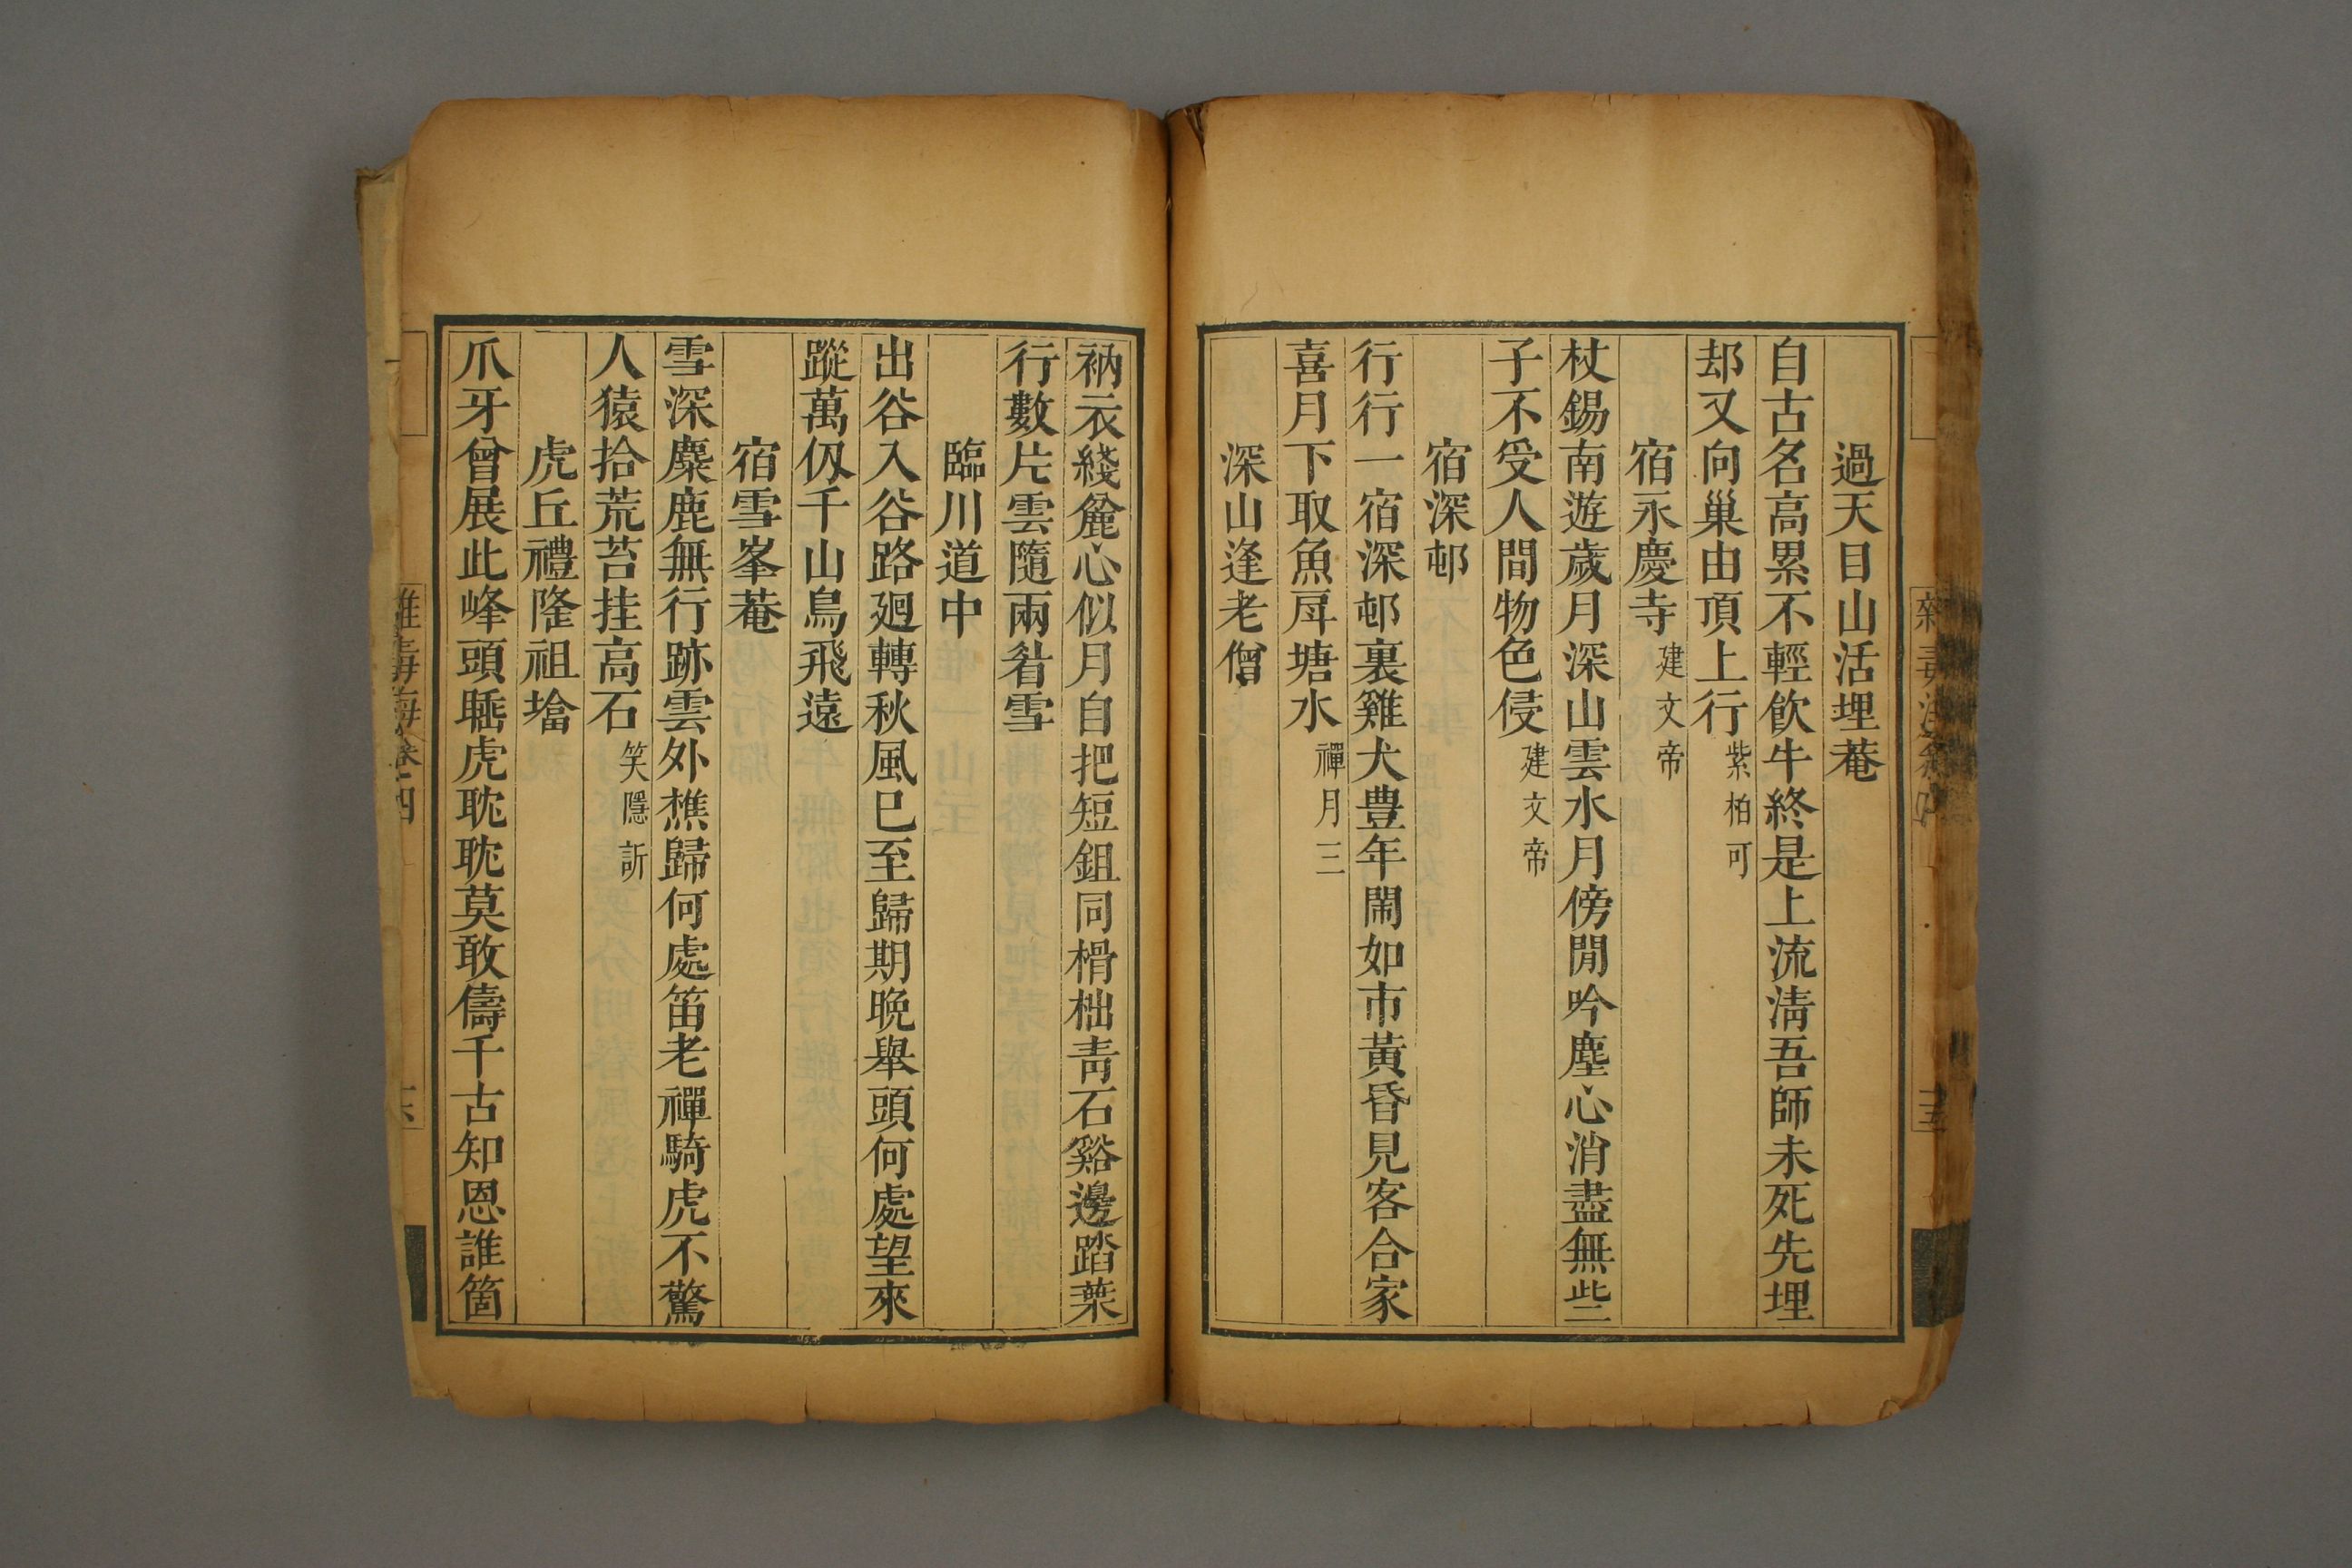 過天目山活埋菴
自古名高累不輕飲牛終是上流淸吾師未死先埋
却又向巢由頂上行紫柏可
宿永慶寺建文帝
杖錫南遊歲月深山雲水月傍閒吟塵心消盡無些
子不受人間物色侵建文帝
宿深邨
行行一宿深邨裏雞犬豊年鬧如市黃昏見客合家
喜月下取魚戽塘水禪月三
深山逢老僧
衲衣綫麤心似月自把短鉏同榾柮靑石谿邊踏葉
行數片雲隨兩眉雪
臨川道中
出谷入谷路廻轉秋風巳至歸期晚舉頭何處望來
蹤萬仭千山鳥飛遠
宿雪峯菴
雪深麋鹿無行跡雲外樵歸何處笛老禪騎虎不驚
人猿拾荒苔挂高石笑隱訢
虎丘禮隆祖墖
爪牙曾展此峰頭聽虎耽耽莫敢儔千古知恩誰箇